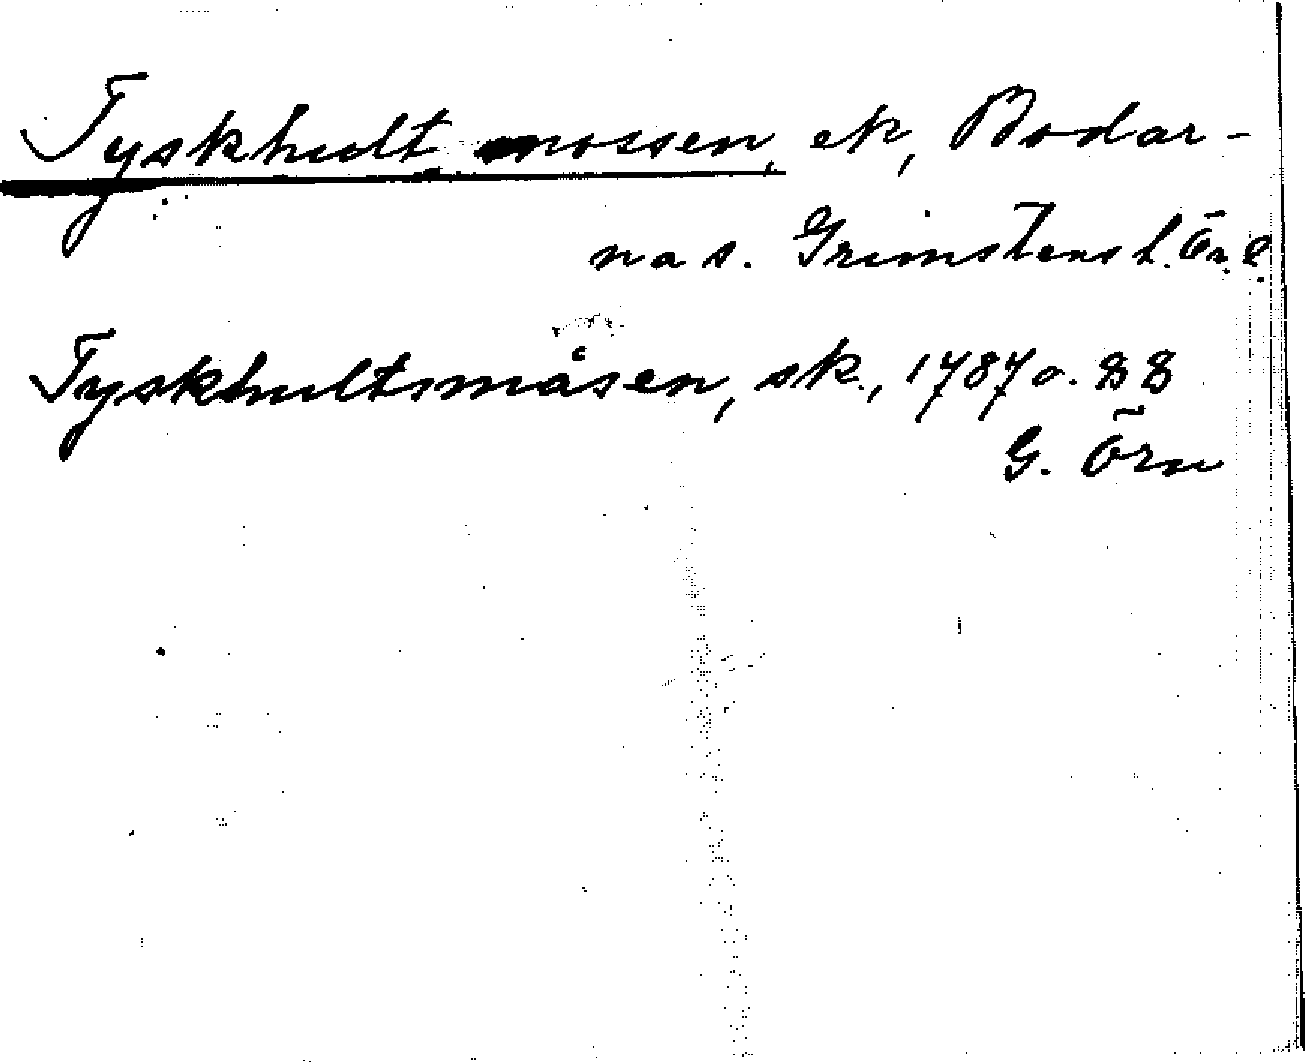 Tyskhult mossen, ek, Bodar-
na s. Grimstens h. Ör. l.
Tyskhultsmåsen, sk., 1787 o. 88
G. Örn